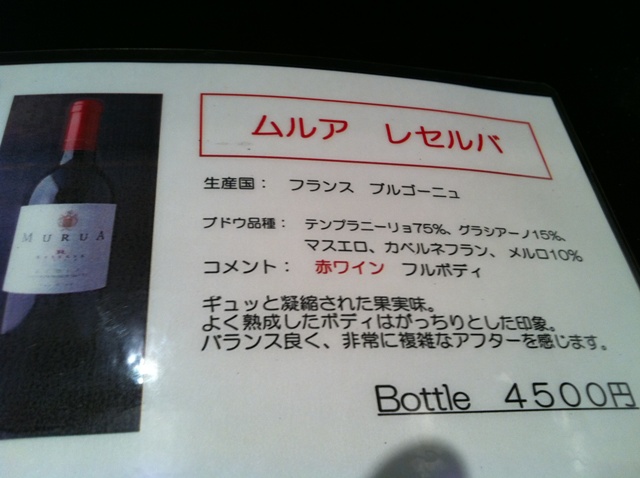 ムルア　レセルバ
生産国：　フランス　ブルゴーニュ
ブドウ品種：　テンプラニーリョ75%、グラシアーノ15%、
マスエロ、カベルネフラン、メルロ10%
コメント：　赤ワイン　フルボディ
ギュッと凝縮された果実味。
よく熟成したボディはがっちりとした印象。
バランス良く、非常に複雑なアフターを感じます。
Bottle　4500円
MURUA